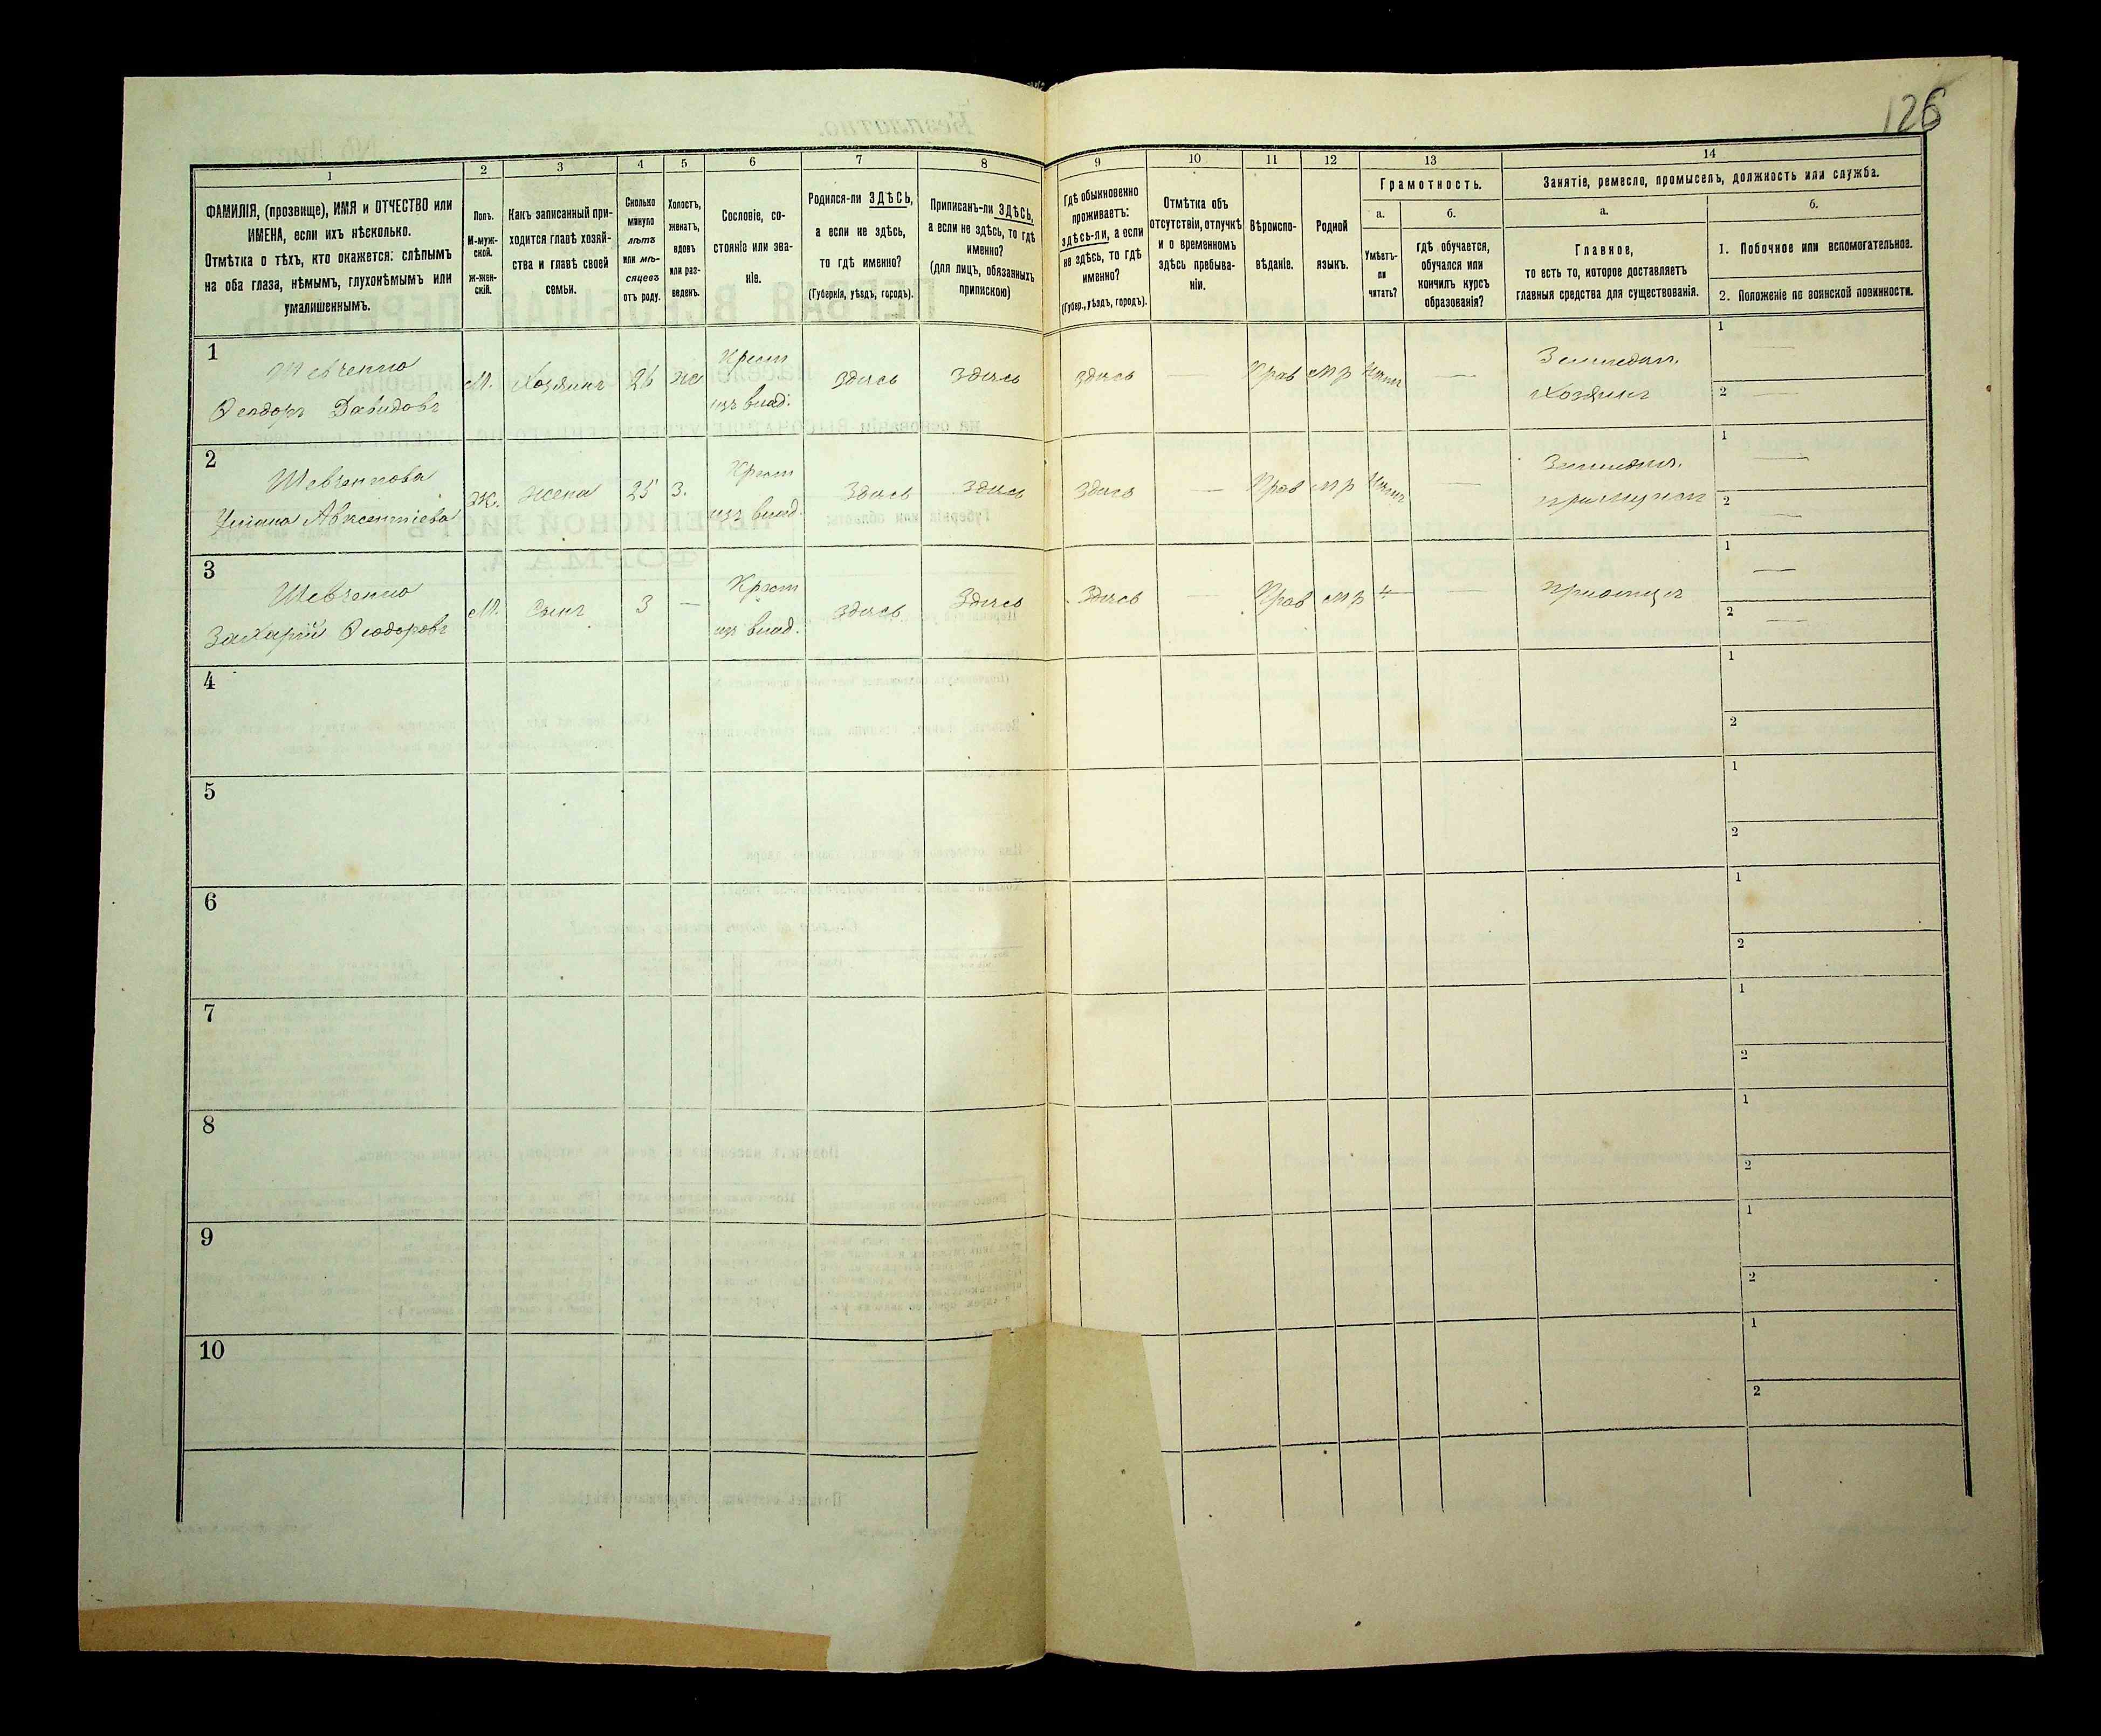 126
1
2
3
4
5
6
7
8
9
10
11
12
13
14
ФАМИЛІЯ, (прозвище), ИМЯ и ОТЧЕСТВО или
ИМЕНА, если ихъ нѣсколько.
Отмѣтка о тѣхъ, кто окажется: слѣпымъ
на оба глаза, нѣмымъ, глухонѣмымъ или
умалишеннымъ.
Полъ.
М-муж-
ской.
Ж-жен-
скій.
Какъ записанный при-
ходится главѣ хозяй-
ства и главѣ своей
семьи.
Сколько
минуло
лѣтъ
или мѣ-
сяцевъ
отъ роду.
Холостъ,
женатъ,
вдовъ
или раз-
веденъ.
Сословіе, со-
стояніе или зва-
ніе.
Родился-ли ЗДѢСЬ,
а если не здѣсь,
то гдѣ именно?
(Губернія, уѣздъ, городъ).
Приписанъ-ли ЗДѢСЬ,
а если не здѣсь, то гдѣ
именно?
(для лицъ, обязанныхъ
припискою)
Гдѣ обыкновенно
проживаетъ:
здѣсь-ли, а если
не здѣсь, то гдѣ
именно?
(Губер., уѣздъ, городъ).
Отмѣтка объ
отсутствіи, отлучкѣ
и о временномъ
здѣсь пребыва-
ніи.
Вѣроиспо-
вѣданіе.
Родной
языкъ.
Грамотность.
а.
б.
Умѣетъ-
ли
читать?
гдѣ обучается,
обучался или
кончилъ курсъ
образованія?
Занятіе, ремесло, промыселъ, должность или служба.
а.
б.
Главное,
то есть то, которое доставляетъ
главныя средства для существованія.
1. Побочное или вспомогательное.
2. Положеніе по воинской повинности.
1
Шевченко
Ѳеодоръ Давидовъ
М.
Хозяинъ
26
же
Крест
изъ влад.
здѣсь
здѣсь
здѣсь
Прав
мр
Земледѣл.
Хозяинъ
1
2
2
Шевченкова
Авксентіева
Ж.
жена
25
З.
Крест
изъ влад.
здѣсь
здѣсь
здѣсь
Прав
мр
Земледѣл.
1
2
3
Шевченко
Захарій Ѳеодоровъ
М.
Сынъ
3
Крест
изъ влад.
здѣсь
здѣсь
здѣсь
Прав
мр
При отцѣ
1
2
4
1
2
5
1
2
6
1
2
7
1
2
8
1
2
9
1
2
10
1
2